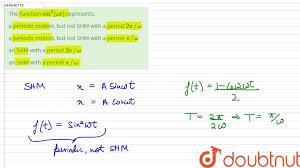 644540778
The function sin²(ωt) represents.
a periodic motion, but not SHM with a period 2π/ω
a periodic motion, but not SHM with a period π/ω
an SHM with a period 2π/ω
an SHM with a period π/ω
SHM x = A sinωt
x = A cosωt
f(t) = sin²ωt
periodic, not SHM
f(t) = 1-cos2ωt / 2
T = 2π/2ω ⇒ T = π/ω
doubtnut